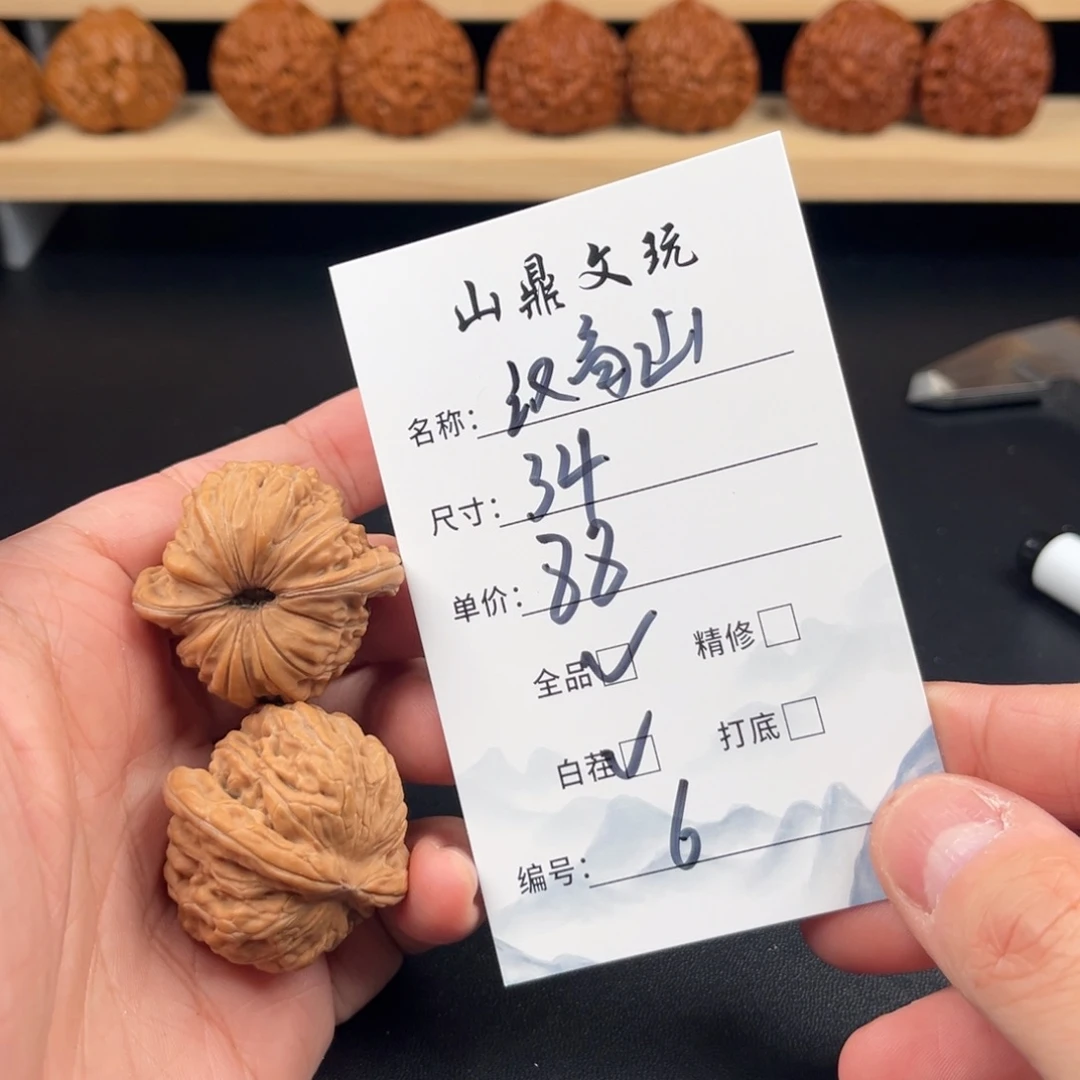 山鼎文玩
名称：纹高山
尺寸：34
单价：88
全品✓ 精修□
白茬✓ 打底□
编号：6